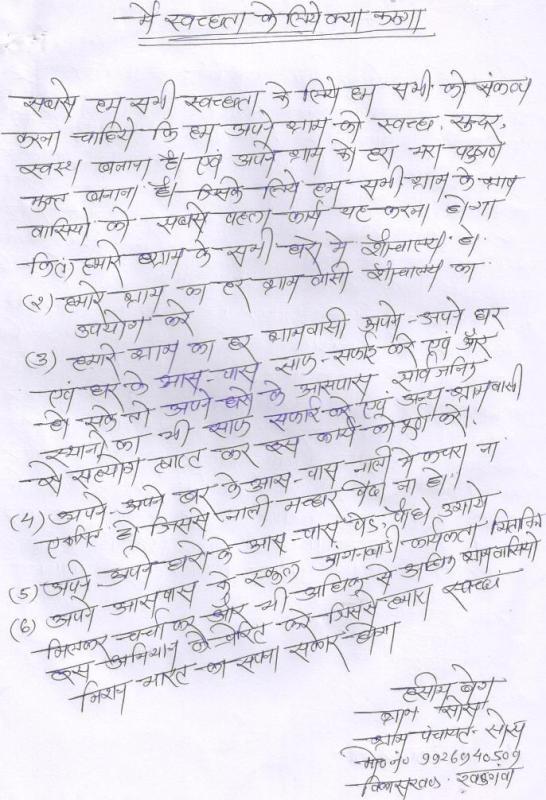 मैं स्वच्छता के लिये क्या करुगा
सबसे हम सभी स्वच्छता के लिये हम सभी को संकल्प
करना चाहिये कि हम अपने ग्राम को स्वच्छ, सुन्दर,
स्वस्थ बनाना है। एवं अपने ग्राम को हरा भरा प्रदुषण
मुक्त बनाना है। जिसके लिये हम सभी ग्राम के
वासियो को सबसे पहला कार्य यह करना होगा
हमारे ग्राम के सभी घरो मे शौचालय हो।
(२) हमारे ग्राम का हर ग्राम वासी शौचालय का
उपयोग करे
(3) हमारे ग्राम का हर ग्रामवासी अपने-अपने घर
एवं घर के आस-पास साफ-सफाई करे एवं और
हो सके तो अपने घरो के आसपास सार्वजनिक
स्थानो का भी साफ सफाई करे एवं अन्य ग्रामवासी
से सहयोग प्राप्त कर इस कार्य को पूर्ण करे।
(4) अपने-अपने घर के आस-पास नाली मे कचरा ना
एकत्रित हो जिससे नाली मच्छर पैदा ना हो।
(5) अपने-अपने घरो के आस-पास पेड़, पौधे उगाये
(6) अपने आसपास के स्कूल आंगनबाडी कार्यकर्ता
मिलकर चर्चा कर और भी अधिक से अधिक ग्रामवासियो
इस अभियान को प्रेरित करे जिससे हमारा स्वच्छ
मिशन भारत का सपना साकार होगा
हसीम बेग
ग्राम सोस
ग्राम पंचायत- सोस
मो० नं० 9926940509
विकासखण्ड खडगंवा